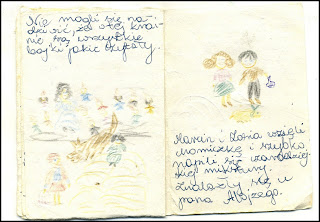 Nie mogli się na-
dziwić, że w tej krai-
nie są wszystkie
bajki jakie czytały.
Marcin i Zosia wzięli
Moniczkę i szybko
napili się czarodziej
skiej mikstury.
Znalazły się u
pana Alojzego.